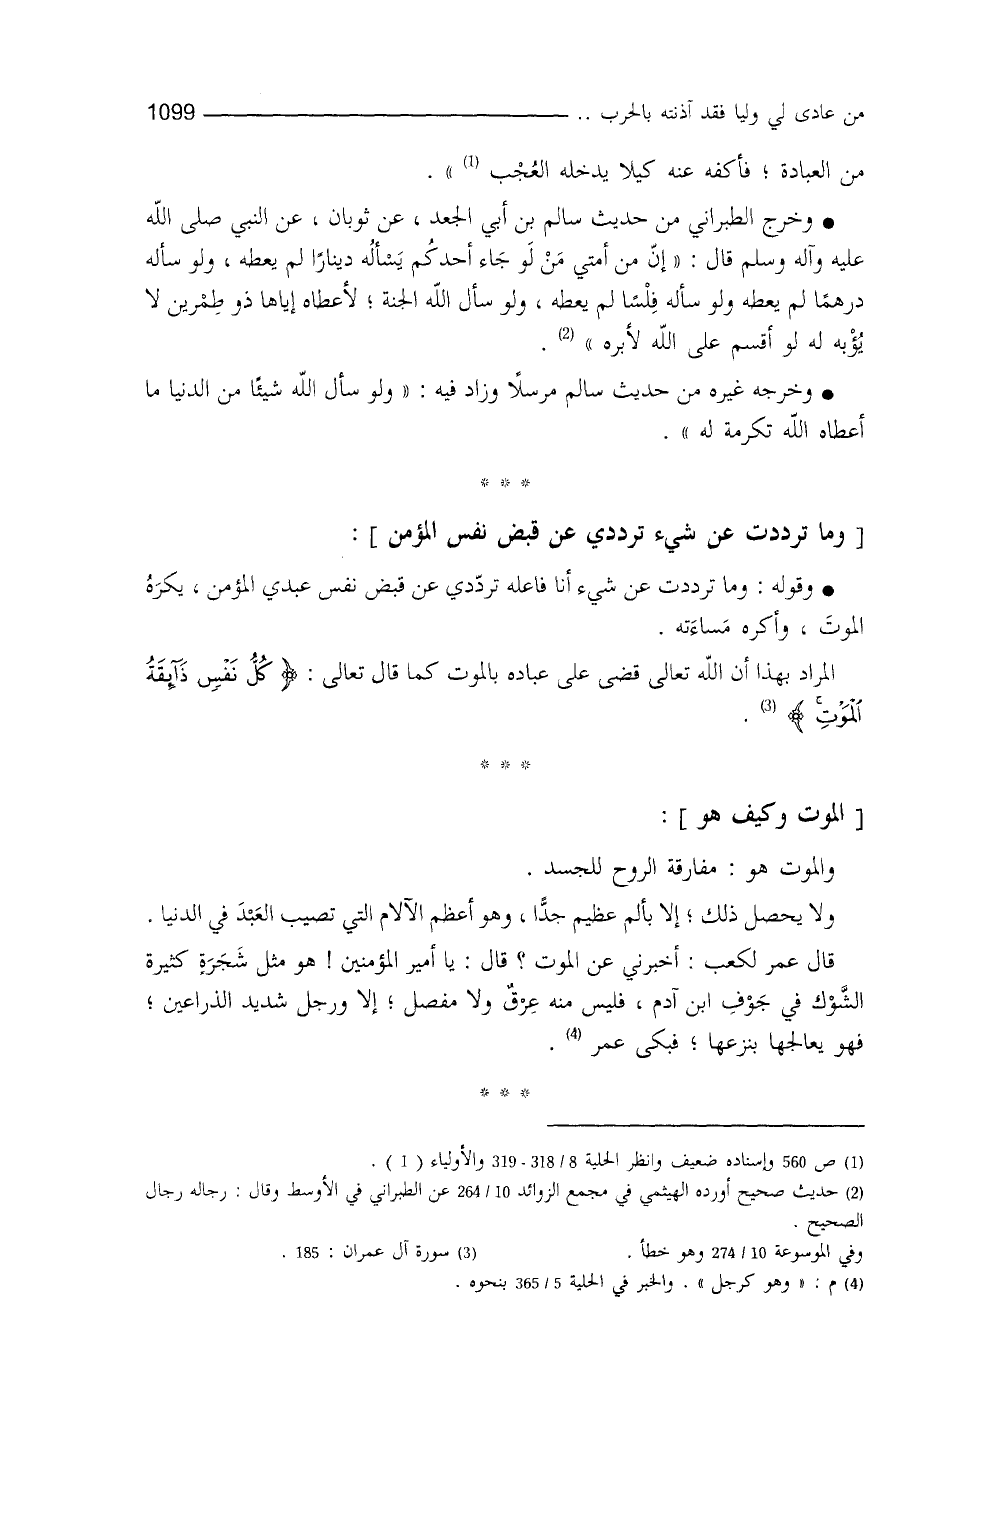 من عادى لي وليا فقد آذنته بالحرب .. 1099
من العبادة ؛ فأكفه عنه كيلا يدخله العُجْب (1) » .
● وخرج الطبراني من حديث سالم بن أبي الجعد ، عن ثوبان ، عن النبي صلى اللّه
عليه وآله وسلم قال : « إنّ من أمتي مَنْ لَو جَاء أحدكُم يَسْألُه دينارًا لم يعطه ، ولو سأله
درهمًا لم يعطه ولو سأله فِلْسًا لم يعطه ، ولو سأل اللّه الجنة ؛ لأعطاه إياها ذو طِمْرين لا
يُؤْبه له لو أقسم على اللّه لأبره » (2) .
● وخرجه غيره من حديث سالم مرسلًا وزاد فيه : « ولو سأل اللّه شيئًا من الدنيا ما
أعطاه اللّه تكرمة له » .
* * *
[ وما ترددت عن شيء ترددي عن قبض نفس المؤمن ] :
● وقوله : وما ترددت عن شيء أنا فاعله تردّدي عن قبض نفس عبدي المؤمن ، يكرَهُ
الموتَ ، وأكره مَساءَته .
المراد بهذا أن اللّه تعالى قضى على عباده بالموت كما قال تعالى : ﴿ كُلُّ نَفْسٍ ذَآئِقَةُ
ٱلْمَوْتِۚ ﴾ (3) .
* * *
[ الموت وكيف هو ] :
والموت هو : مفارقة الروح للجسد .
ولا يحصل ذلك ؛ إلا بألم عظيم جدًّا ، وهو أعظم الآلام التي تصيب العَبْدَ في الدنيا .
قال عمر لكعب : أخبرني عن الموت ؟ قال : يا أمير المؤمنين ! هو مثل شَجَرَةٍ كثيرة
الشَّوْك في جَوْفِ ابن آدم ، فليس منه عِرْقٌ ولا مفصل ؛ إلا ورجل شديد الذراعين ؛
فهو يعالجها بنزعها ؛ فبكى عمر (4) .
* * *
(1) ص 560 وإسناده ضعيف وانظر الحلية 8 / 318 - 319 والأولياء ( 1 ) .
(2) حديث صحيح أورده الهيثمي في مجمع الزوائد 10 / 264 عن الطبراني في الأوسط وقال : رجاله رجال
الصحيح .
وفي الموسوعة 10 / 274 وهو خطأ . (3) سورة آل عمران : 185 .
(4) م : « وهو كرجل » . والخبر في الحلية 5 / 365 بنحوه .